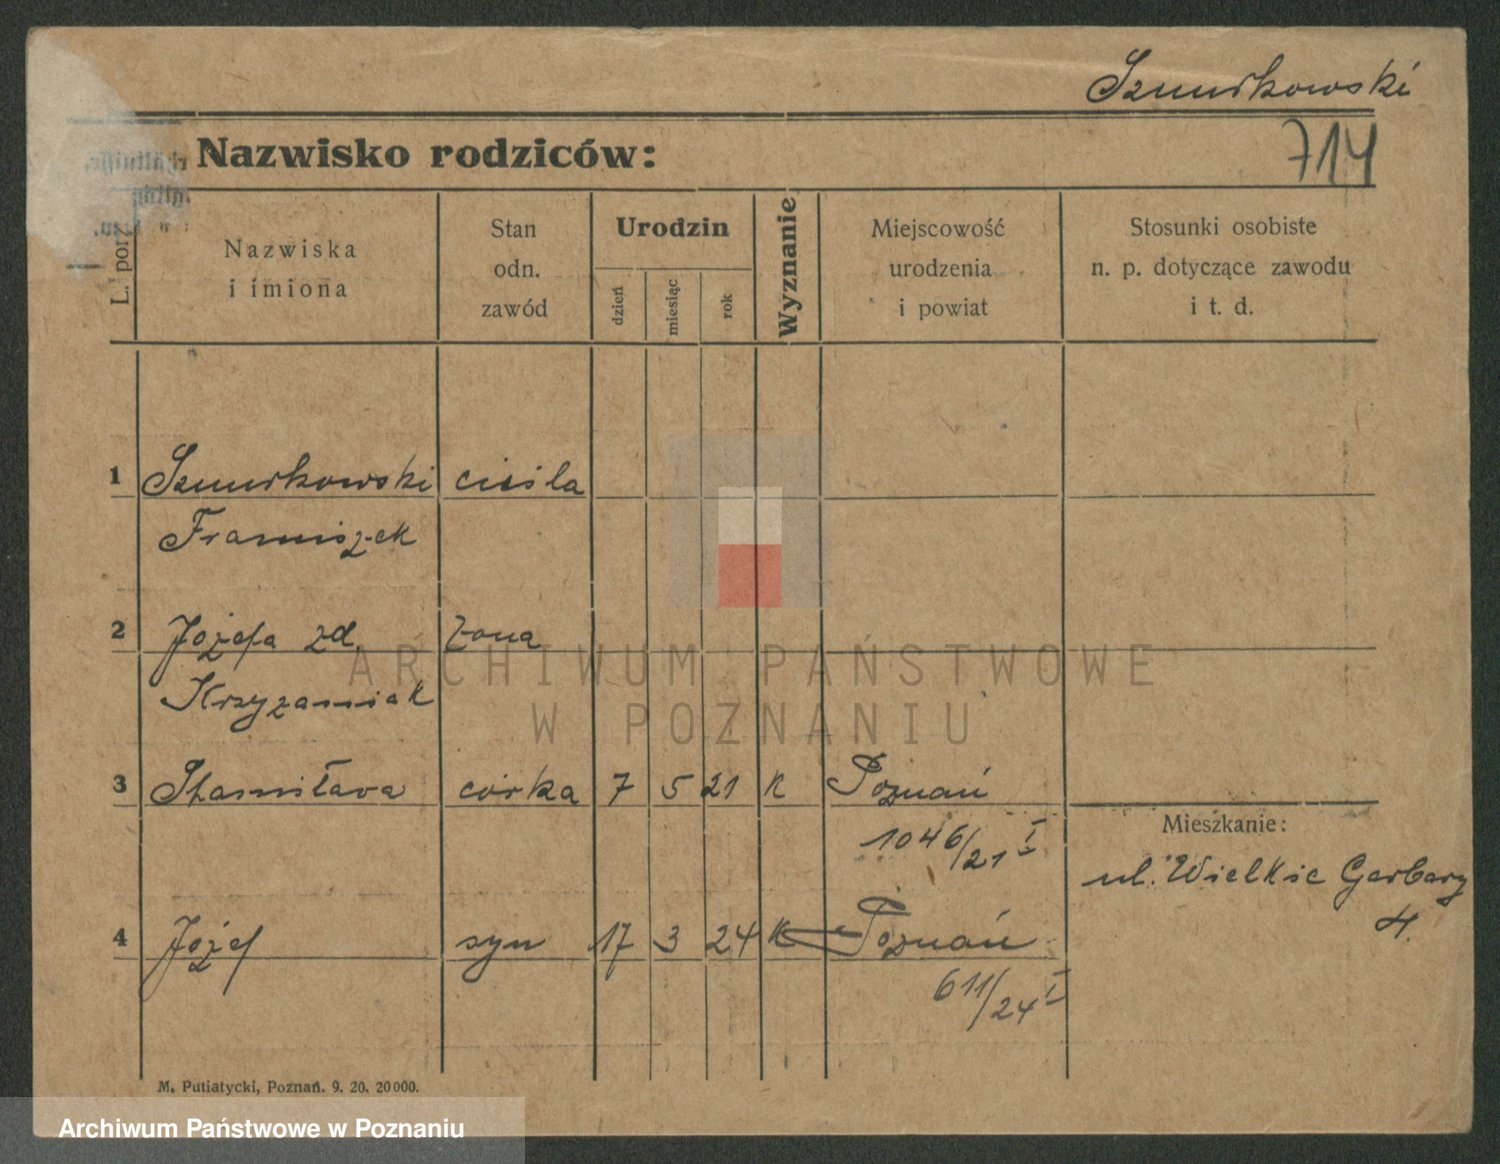 Szmurkowski
714
Nazwisko rodziców:
L. porz.
Nazwiska
i imiona
Stan
odn.
zawód
Urodzin
dzień
miesiąc
rok
Wyznanie
Miejscowość
urodzenia
i powiat
Stosunki osobiste
n. p. dotyczące zawodu
i t. d.
1 Szmurkowski cieśla
Franciszek
2 Józefa zd. żona
Krzyżaniak
3 Stanisława córka 7 5 21 K Poznań
1046/21 I
Mieszkanie:
ul. Wielkie Garbary
4.
4 Józef syn 17 3 24 K Poznań
611/24 I
M. Putiatycki, Poznań. 9. 20. 20000.
ARCHIWUM PAŃSTWOWE
W POZNANIU
Archiwum Państwowe w Poznaniu